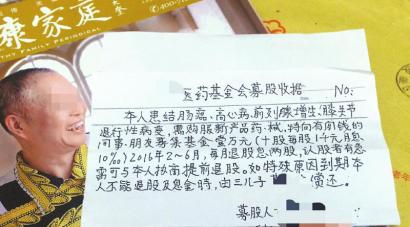 康家庭
THY FAMILY PERIODICAL
医药基金会募股收据 No:
本人患结肠癌、高心病、前列腺增生、膝关节
退行性病变,需购服新产品药、械,特向有闲钱的
同事、朋友募集基金壹万元(十股每股1千元,月息
10%)2016年2~6月,每月退股息两股,认股者有急
需可与本人协商提前退股。如特殊原因到期本
人不能退股及息金时,由三儿子 赏还。
募股人: